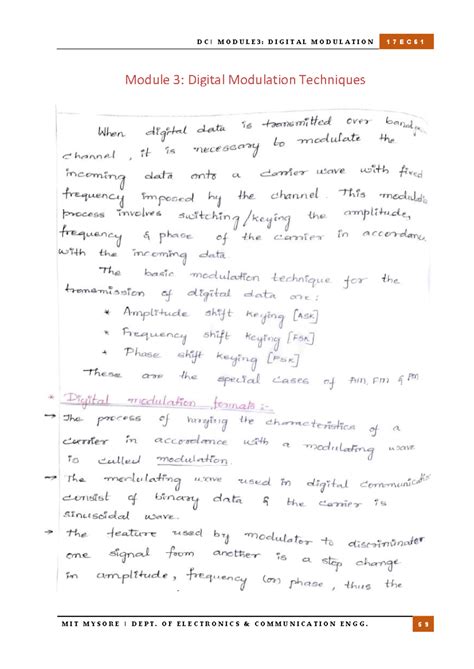 DC| MODULE3: DIGITAL MODULATION 17EC61
Module 3: Digital Modulation Techniques
When digital data is transmitted over
channel, it is necessary to modulate the
incoming data onto a carrier wave with fixed
frequency imposed by the channel. This
process involves switching/keying the amplitude,
frequency & phase of the carrier in accordance
with the incoming data
The basic modulation technique for the
transmission of digital data are:
* Amplitude shift keying [ASK]
* Frequency shift keying [FSK]
* Phase shift keying [PSK]
These are the special cases of AM, FM & PM
* Digital modulation formats :-
→ The process of varying the characteristics of a
carrier in accordance with a modulating wave
is called modulation.
→ The modulating wave used in digital
consist of binary data & the carrier is
sinusoidal wave.
→ The feature used by modulator to
one signal from another is a step change
in amplitude, frequency (or) phase, thus the
MIT MYSORE | DEPT. OF ELECTRONICS & COMMUNICATION ENGG.